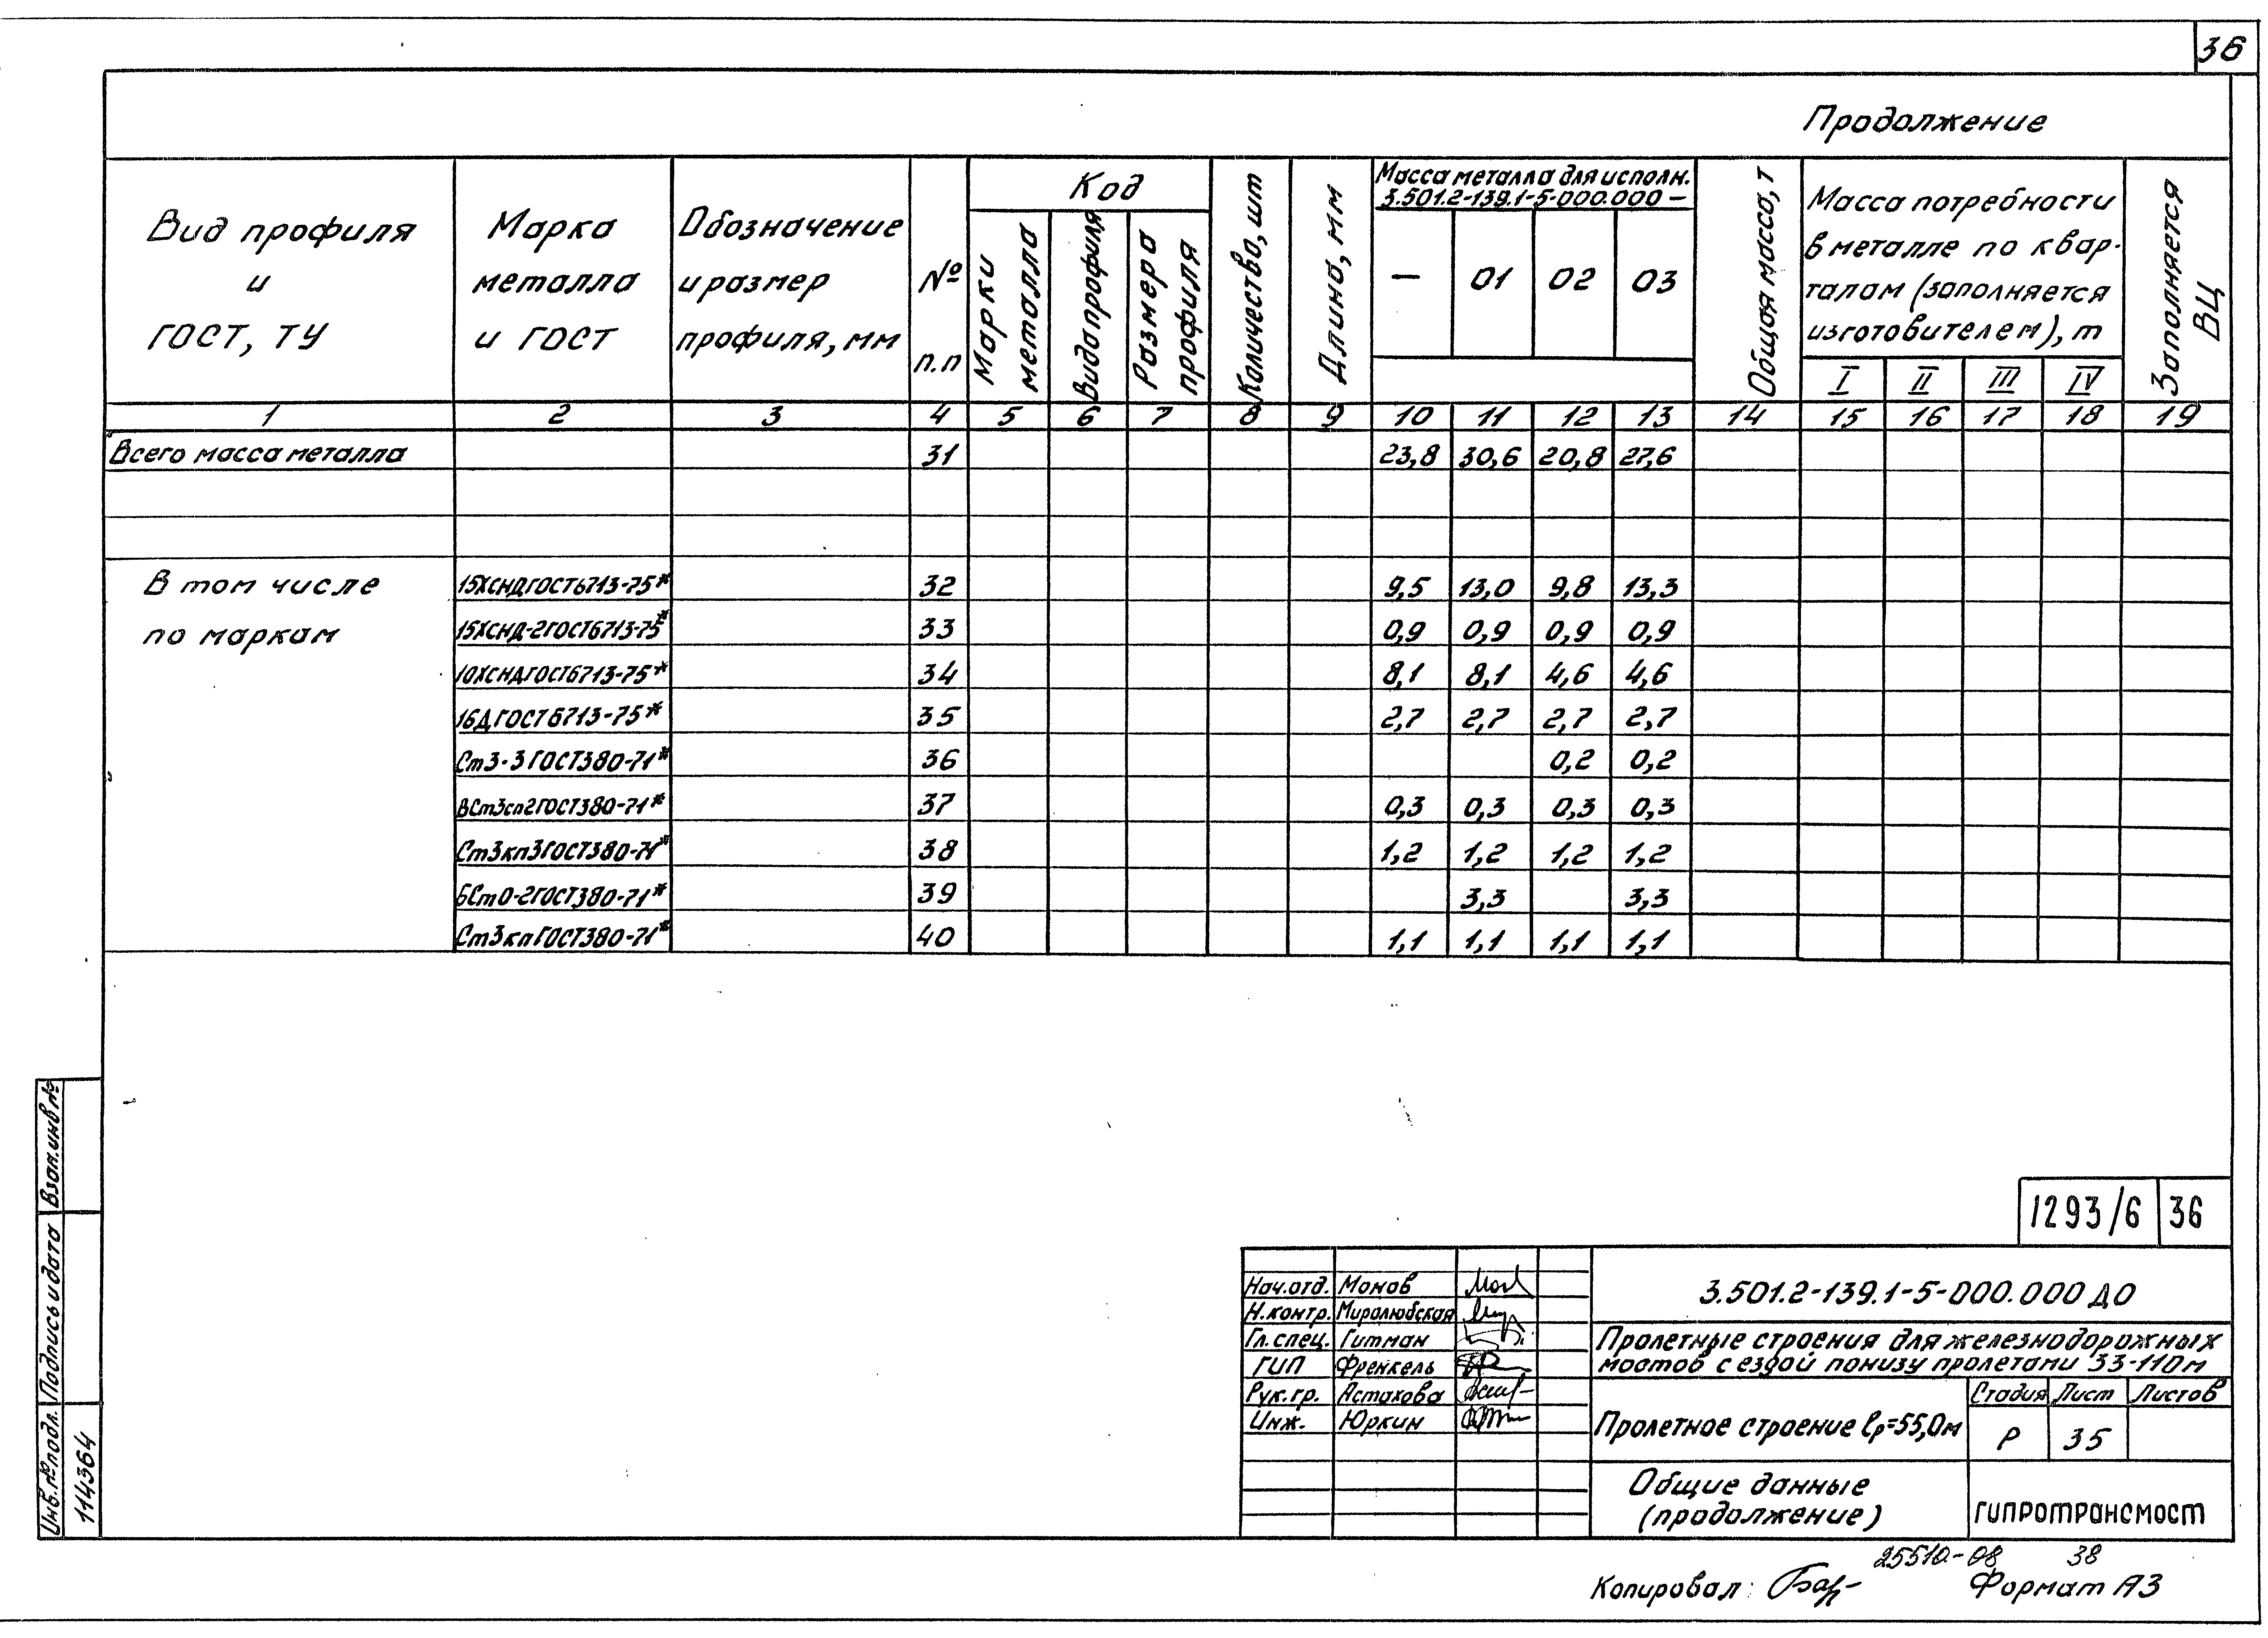 36
Продолжение
Вид профиля
и
ГОСТ, ТУ
Марка
металла
и ГОСТ
Обозначение
и размер
профиля, мм
№
п.п
Код
Марки
металла
Вида профиля
Размера
профиля
Количество, шт
Длина, мм
Масса металла для исполн.
3.501.2-139.1-5-000.000 —
— 01 02 03
Общая масса, т
Масса потребности
в металле по квар-
талам (заполняется
изготовителем), т
I II III IV
Заполняется
ВЦ
1 2 3 4 5 6 7 8 9 10 11 12 13 14 15 16 17 18 19
Всего масса металла 31 23,8 30,6 20,8 27,6
В том числе 15ХСНДГОСТ6713-75* 32 9,5 13,0 9,8 13,3
по маркам 15ХСНД-2ГОСТ6713-75* 33 0,9 0,9 0,9 0,9
10ХСНДГОСТ6713-75* 34 8,1 8,1 4,6 4,6
16Д ГОСТ6713-75* 35 2,7 2,7 2,7 2,7
Ст3-3ГОСТ380-71* 36 0,2 0,2
ВСт3сп2ГОСТ380-71* 37 0,3 0,3 0,3 0,3
Ст3кп3ГОСТ380-71* 38 1,2 1,2 1,2 1,2
БСт0-2ГОСТ380-71* 39 3,3 3,3
Ст3кпГОСТ380-71* 40 1,1 1,1 1,1 1,1
Взам.инв№
Подпись и дата
Инв.№подл.
114364
1293/6 36
Нач.отд. Монов
Н.контр. Миролюбская
Гл.спец. Гитман
ГИП Френкель
Рук.гр. Астахова
Инж. Юркин
3.501.2-139.1-5-000.000 ДО
Пролетные строения для железнодорожных
мостов с ездой понизу пролетами 33-110м
Пролетное строение lр=55,0м
Стадия Лист Листов
Р 35
Общие данные
(продолжение)
ГИПРОТРАНСМОСТ
25510-08 38
Копировал: Формат А3